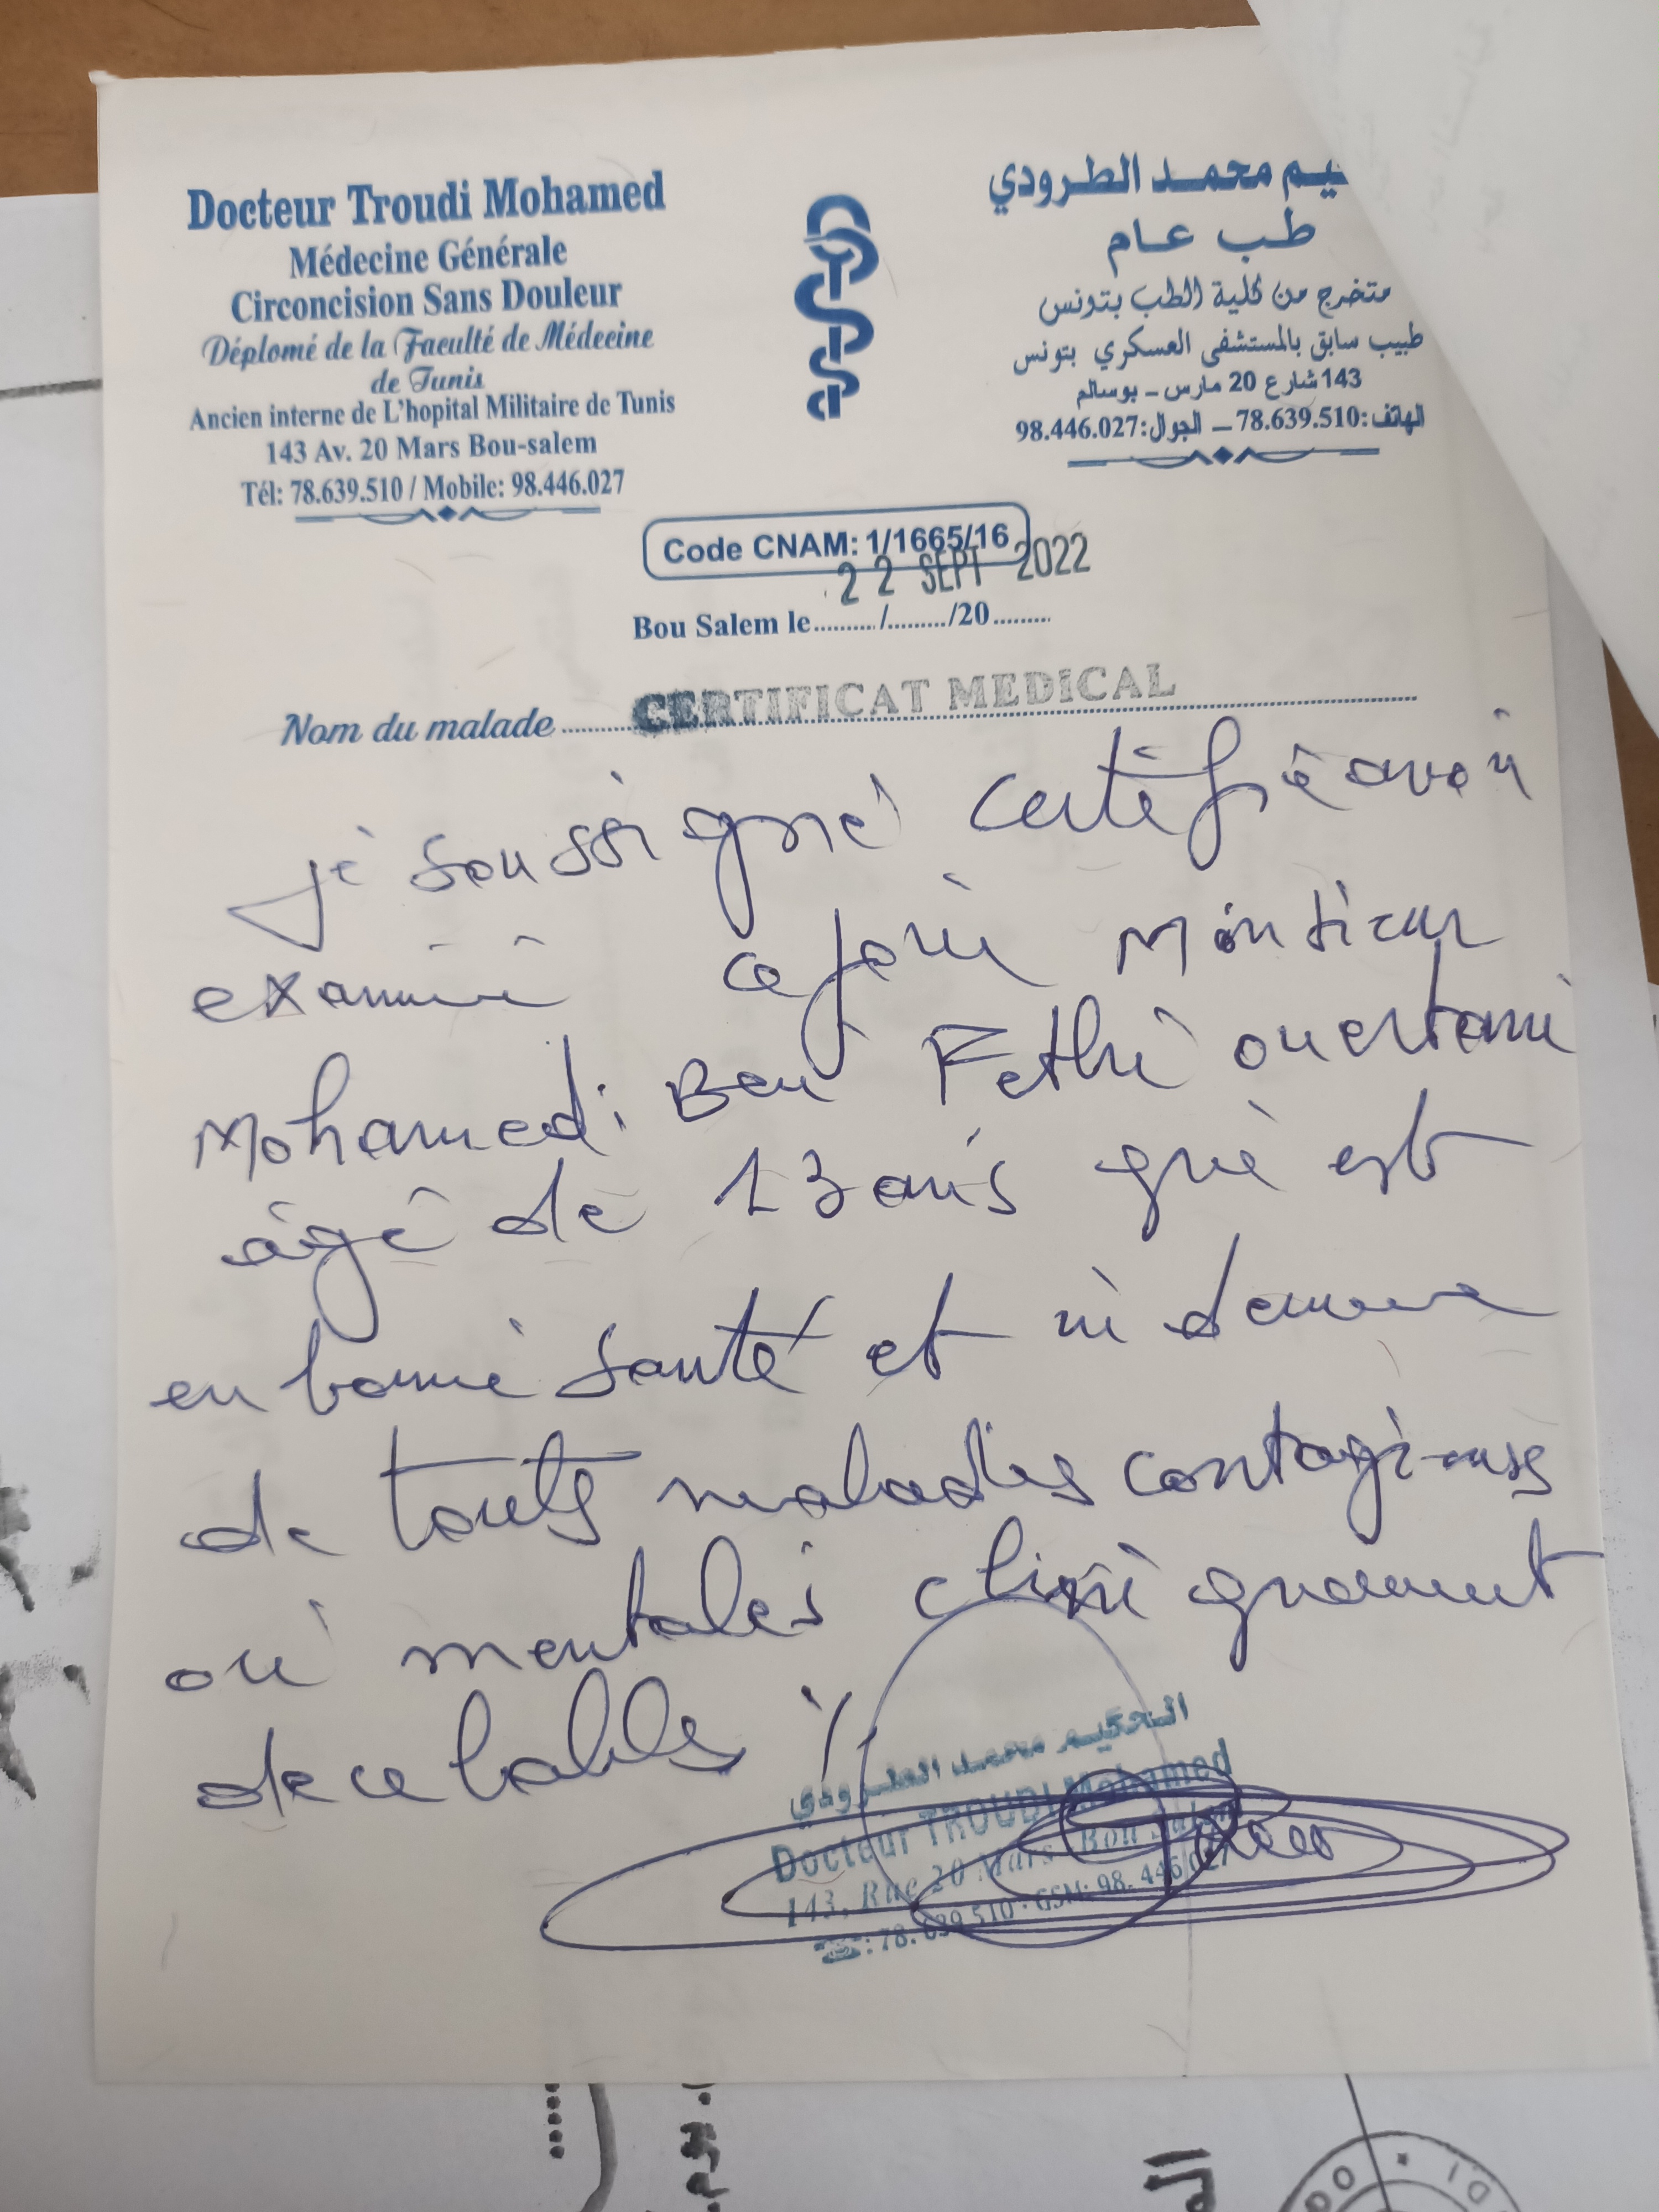 Docteur Troudi Mohamed
Médecine Générale
Circoncision Sans Douleur
Déplomé de la Faculté de Médecine
de Tunis
Ancien interne de L'hopital Militaire de Tunis
143 Av. 20 Mars Bou-salem
Tél: 78.639.510 / Mobile: 98.446.027
محمد الطرودي
طب عام
متخرج من كلية الطب بتونس
طبيب سابق بالمستشفى العسكري بتونس
143 شارع 20 مارس - بوسالم
الهاتف: 78.639.510 - الجوال: 98.446.027
Code CNAM: 1/1665/16
22 SEPT 2022
Bou Salem le ........./........./20.........
Nom du malade
CERTIFICAT MEDICAL
Je soussigné certifié avoir
examiné ce jour Monsieur
Mohamed: Ben Fethi ouertani
âgé de 13 ans qui est
en bonne santé et indemne
de touts maladies contagieuses
ou mentales cliniquement
decelables ./.
الحكيم محمد الطرودي
Docteur TROUDI Mohamed
143, Rue 20 Mars Bou Salem
: 78. 639 510 - GSM: 98. 446 027